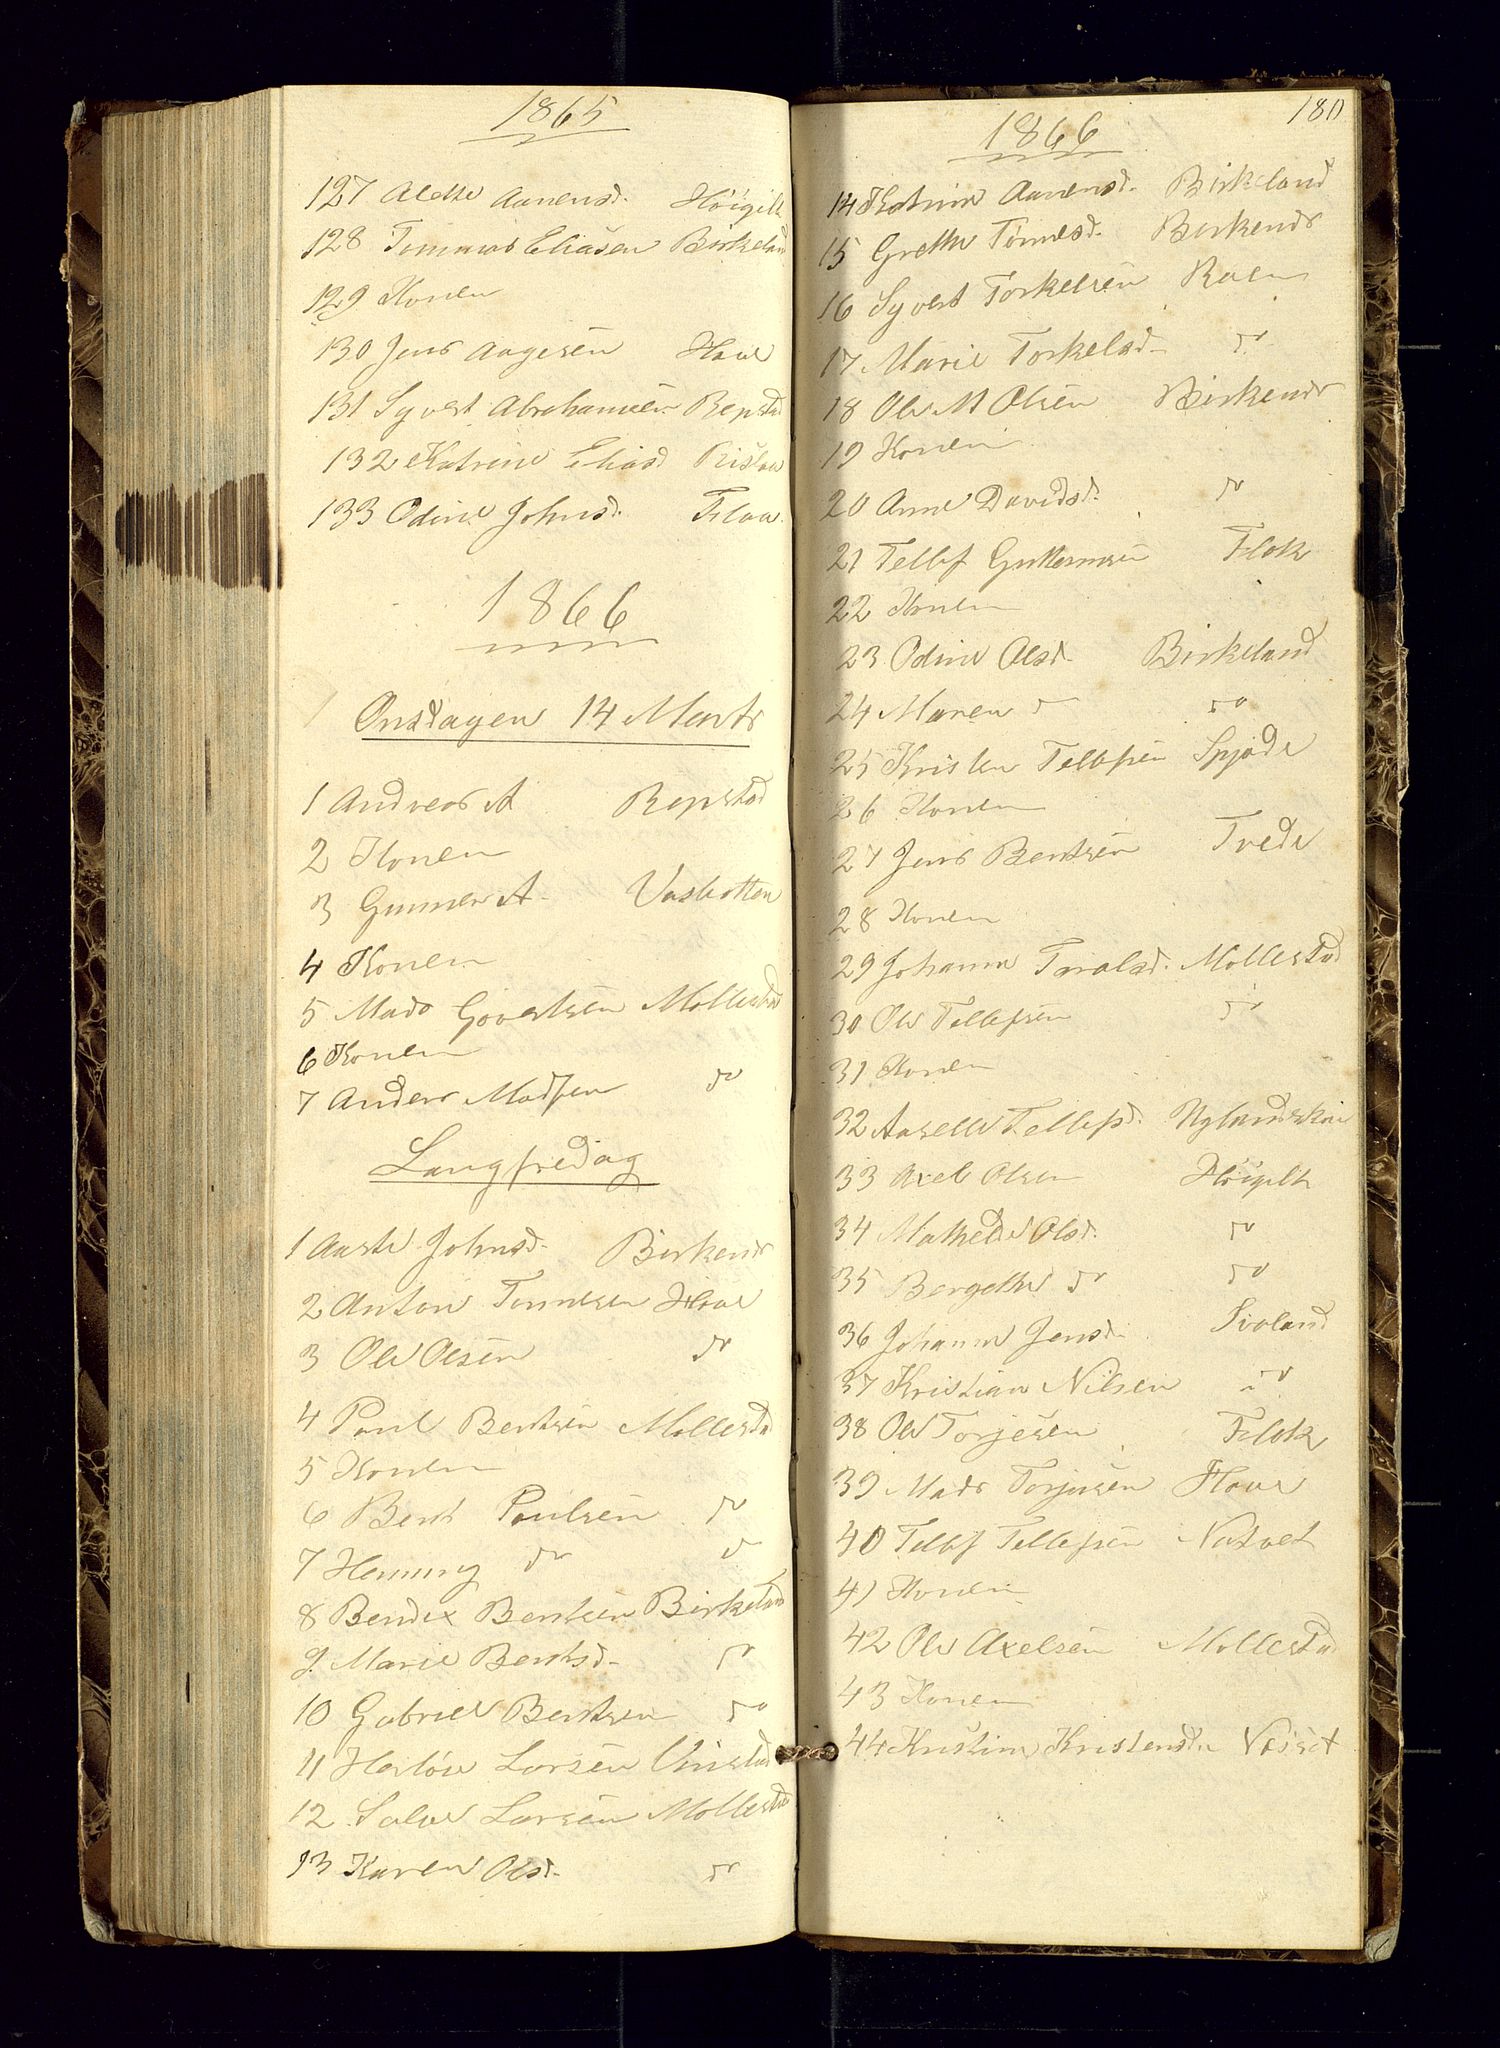 1865
127 Alette Aanensd. Høigilt
128 Tommas Eliasen Birkeland
129 Konen
130 Jens Aagesen Haae
131 Syvert Abrahamsen Repstad
132 Katrine Eliasd Rislaa
133 Odine Johnsd. Flaa
1866
Onsdagen 14 Marts
1 Andreas A Repstad
2 Konen
3 Gunner A. Vasbotten
4 Konen
5 Mads Govertsen Mollestad
6 Konen
7 Anders Madsen do
Langfredag
1 Aaste Johnsd. Birkenes
2 Anton Tønnesen Haae
3 Ole Olsen do
4 Poul Bentsen Mollestad
5 Konen
6 Bent Poulsen do
7 Henning do do
8 Bendix Bentsen Birkeland
9. Marie Bentsd. do
10 Gabriel Bentsen do
11 Larsen
12 Salve Larsen Mollestad
13 Karen Olsd. do
180
1866
14 Katrine Aanensd. Birkeland
15 Grethe Tønnesd. Birkenes
16 Syvert Torkelsen Raen
17 Marie Torkelsd. do
18 Ole M Olsen Birkenes
19 Konen
20 Anne Davidsd. do
21 Tellef Guttormsen Flak
22 Konen
23 Odine Olsd. Birkeland
24 Maren do do
25 Kristen Tellefsen
26 Konen
27 Jens Bentsen Tvede
28 Konen
29 Johanne Taralsd. Mollestad
30 Ole Tellefsen do
31 Konen
32 Tellefsd.
33 Axel Olsen Høigilt
34 Mathede Olsd. do
35 Bergethe do do
36 Johanne Jensd. Svaland
37 Kristian Nilsen do
38 Ole Torjesen Flak
39 Mads Torjusen Haae
40 Tellef Tellefsen Natvet
41 Konen
42 Ole Axelsen Mollestad
43 Konen
44 Kristine Kristensd.